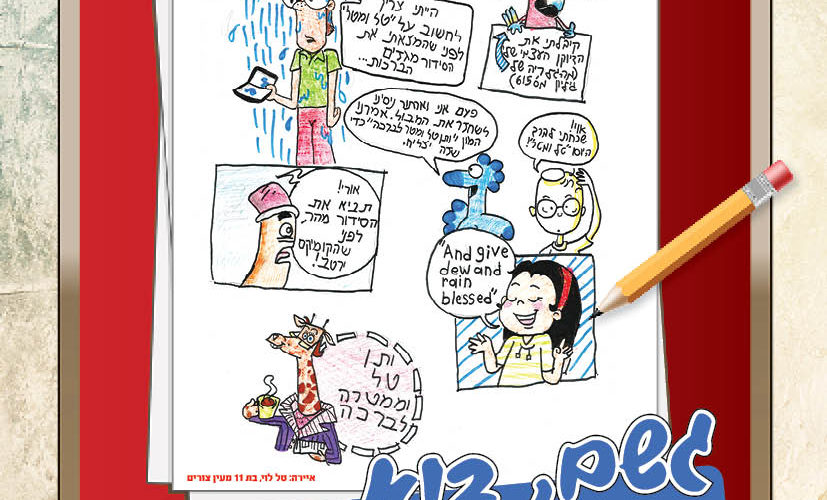 הייתי צריך
לחשוב על "טל ומטר"
לפני שהמצאתי את
הסידור מגדים
הברכות...
קיבלתי את
הזיוקן העצמי של
(מהגלריה של
גליון מס 615)
פעם אני ואסתר ניסינו
לשחזר את המבול. אמרנו
המון "ותן טל ומטר לברכה" כדי
שזה יצליח.
אוי!
שכחתי להגיד
היום "טל ומטר"!
אורי!
תביא את
הסידור מהר,
לפני
שהקומיקס
ירטב!
"And give
dew and
rain
blessed"
ותן
טל
וממטרה
לברכה
איירה: טל לוי, בת 11 מעין צורים
גשם, בוא